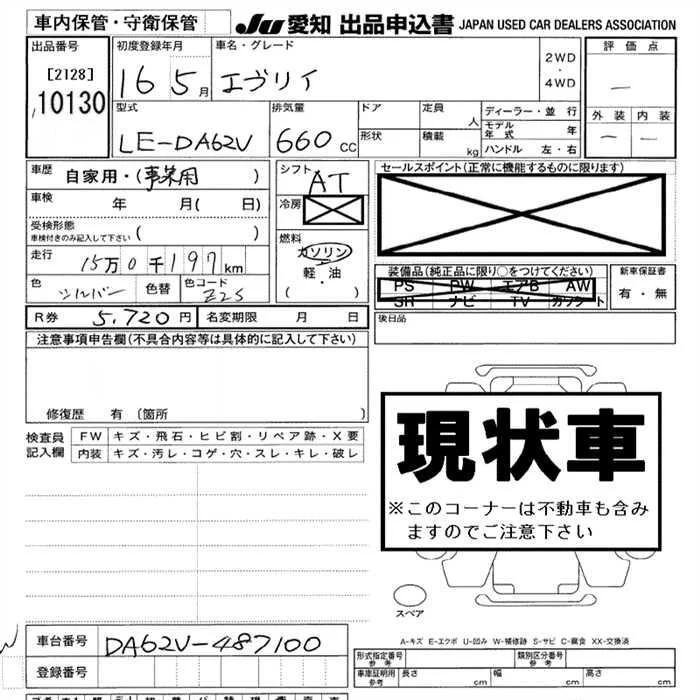 車内保管・守衛保管
JU 愛知 出品申込書 JAPAN USED CAR DEALERS ASSOCIATION
出品番号
[2128]
10130
初度登録年月
16 5月
車名・グレード
エヴリィ
2WD
・
4WD
評価点
外装 内装
型式
LE-DA62V
排気量
660 CC
ドア
形状
定員 人
積載 kg
ディーラー・並行
モデル年式 年
ハンドル 左・右
車歴 自家用・(事業用 )
車検 年 月( 日)
受検形態
車検付きのみ記入して下さい ( )
走行 15万0千197km
色 シルバー 色替 色コード Z2S
シフト AT
冷房
燃料
ガソリン
軽・油
( )
セールスポイント(正常に機能するものに限ります)
装備品(純正品に限り○をつけてください)
PS PW エアB AW
SR ナビ TV カワシート
新車保証書
有・無
後日品
R券 5,720円 名変期限 月 日
注意事項申告欄(不具合内容等は具体的に記入して下さい)
修復歴 有 〔箇所 〕
検査員記入欄
FW キズ・飛石・ヒビ割・リペア跡・X要
内装 キズ・汚レ・コゲ・穴・スレ・キレ・破レ
現状車
※このコーナーは不動車も含み
ますのでご注意下さい
スペア
A-キズ E-エクボ U-凹み W-補修跡 S-サビ C-腐食 XX-交換済
車台番号 DA62V-487100
登録番号
形式指定番号 参考
類別区分番号 参考
車庫証明用 参考
長さ cm 幅 cm 高さ cm